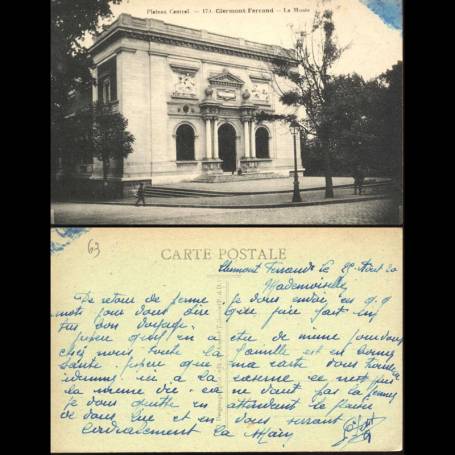 Plateau Central — 173. Clermont Ferrand — Le Musée
63
CARTE POSTALE
Clermont Ferrand le 29 Août 20
Mademoiselle
De retour de ferme je vous envoi en q.q
mots pour vous dire que j'ai fait un
bon voyage.
que il en a été de même pour vous
chez nous toute la famille est en bonne
santé. que ma carte vous
ici a la caserne ce n'est pas
la même vie ca ne vaut pas la
je vous quitte en attendant le plaisir
de vous lire et en vous serrant
cordialement la Main